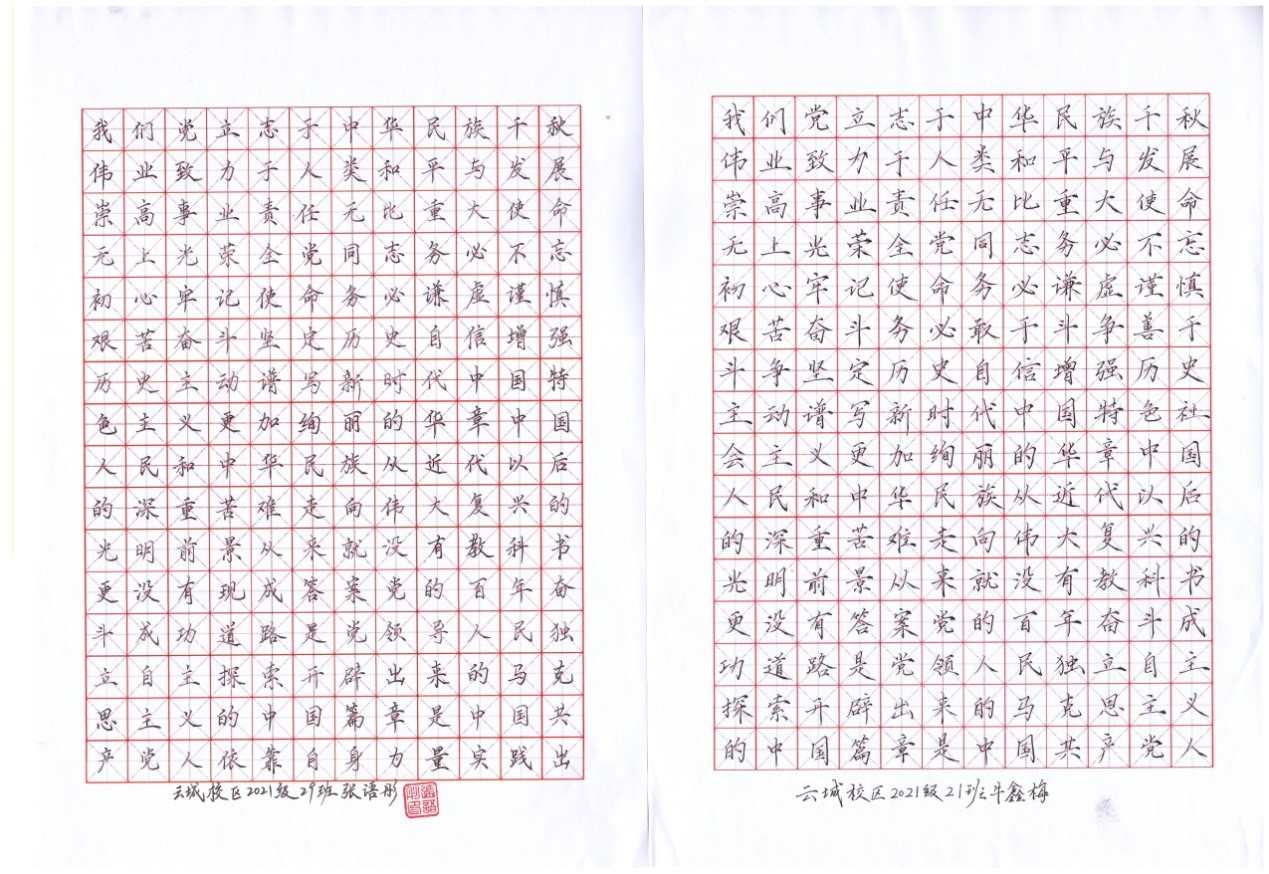 我们党立志于中华民族千秋
伟业致力于人类和平与发展
崇高事业责任无比重大使命
无上光荣全党同志务必不忘
初心牢记使命务必谦虚谨慎
艰苦奋斗坚定历史自信增强
历史主动谱写新时代中国特
色主义更加绚丽的华章中国
人民和中华民族从近代以后
的深重苦难走向伟大复兴的
光明前景从来就没有教科书
更没有现成答案党的百年奋
斗成功道路是党领导人民独
立自主探索开辟出来的马克
思主义的中国篇章是中国共
产党人依靠自身力量实践出
云城校区2021级29班张语彤
我们党立志于中华民族千秋
伟业致力于人类和平与发展
崇高事业责任无比重大使命
无上光荣全党同志务必不忘
初心牢记使命务必谦虚谨慎
艰苦奋斗务必敢于斗争善于
斗争坚定历史自信增强历史
主动谱写新时代中国特色社
会主义更加绚丽的华章中国
人民和中华民族从近代以后
的深重苦难走向伟大复兴的
光明前景从来就没有教科书
更没有答案党的百年奋斗成
功道路是党领人民独立自主
探索开辟出来的马克思主义
的中国篇章是中国共产党人
云城校区2021级21班牛鑫梅